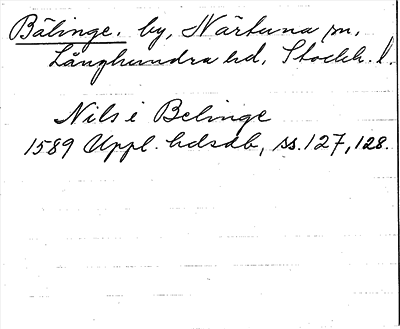 Bälinge. by, Närtuna sn,
Långhundra hd, Stockh. l.
Nils i Belinge
1589 Uppl. hdsdb, ss. 127, 128.